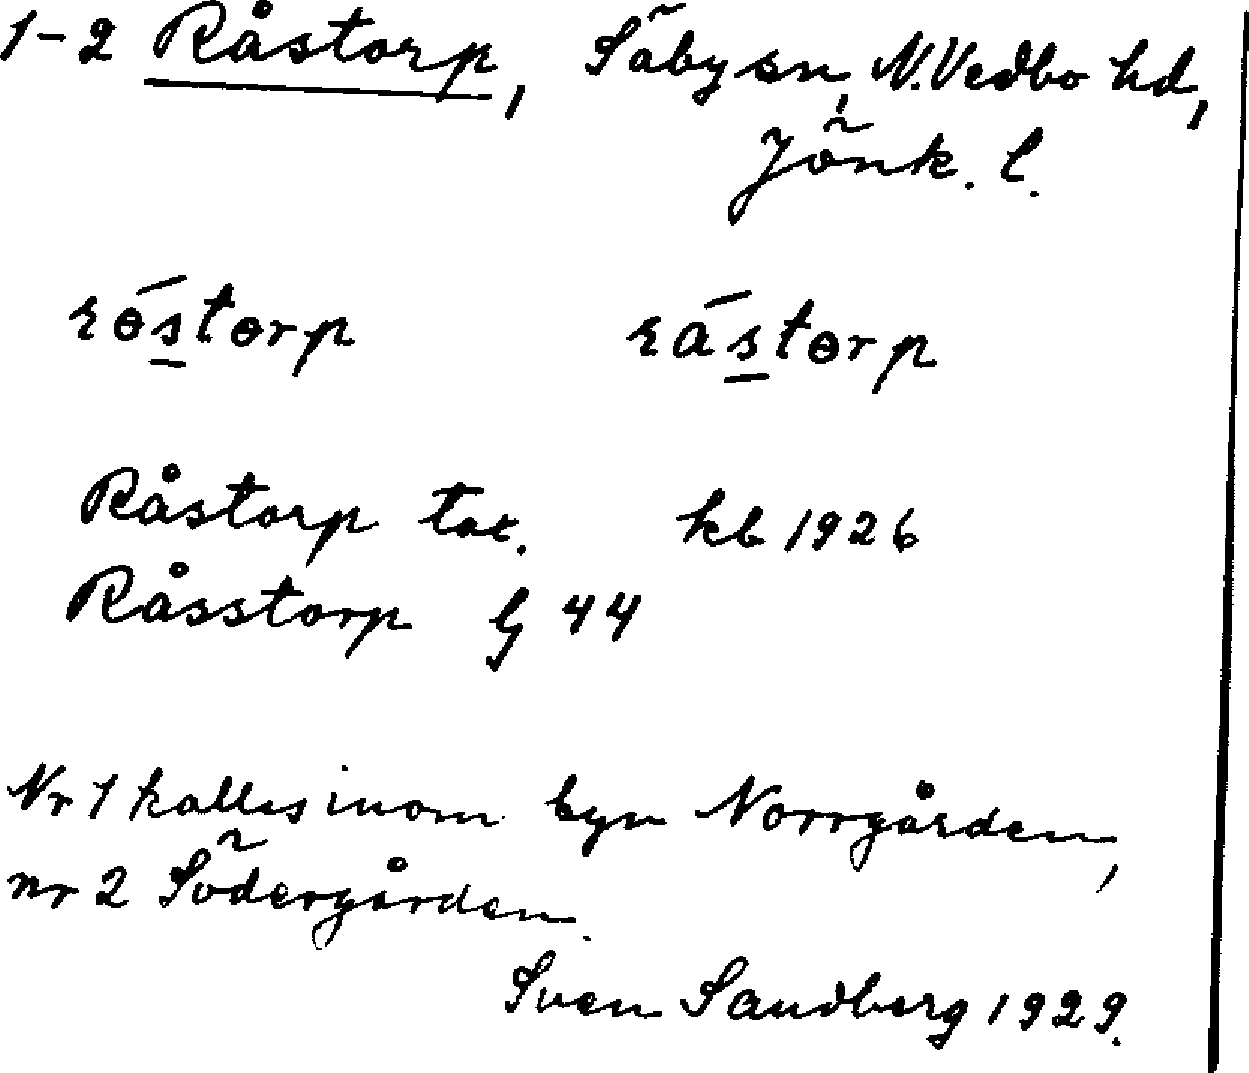 1-2 Råstorp, Säby sn, N. Vedbo hd,
Jönk. l.
röstorp rástorp
Råstorp tax. kb 1926
Råsstorp G 44
Nr 1 kalles inom byn Norrgården,
nr 2 Södergården.
Sven Sandberg 1929.